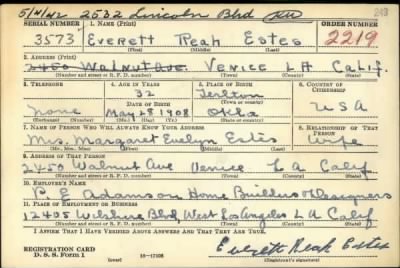 5/11/42 2532 Lincoln Blvd
SERIAL NUMBER 1. NAME (Print) ORDER NUMBER
3573 Everett Reah Estes 2219
(First) (Middle) (Last)
2. ADDRESS (Print)
2450 Walnut Ave. Venice LA Calif.
(Number and street or R. F. D. number) (Town) (County) (State)
3. TELEPHONE 4. AGE IN YEARS 5. PLACE OF BIRTH 6. COUNTRY OF CITIZENSHIP
32 Terlton
DATE OF BIRTH (Town or county)
none May 28 1908 Okla USA
(Exchange) (Number) (Mo.) (Day) (Yr.) (State or country)
7. NAME OF PERSON WHO WILL ALWAYS KNOW YOUR ADDRESS 8. RELATIONSHIP OF THAT PERSON
Mrs. Margaret Evelyn Estes Wife
(Mr., Mrs., Miss) (First) (Middle) (Last)
9. ADDRESS OF THAT PERSON
2450 Walnut Ave Venice LA Calif
(Number and street or R. F. D. number) (Town) (County) (State)
10. EMPLOYER'S NAME
P. E. Adamson Home Builders & Designers
11. PLACE OF EMPLOYMENT OR BUSINESS
12405 Wilshire Blvd, West Los Angeles LA Calif
(Number and street or R. F. D. number) (Town) (County) (State)
I AFFIRM THAT I HAVE VERIFIED ABOVE ANSWERS AND THAT THEY ARE TRUE.
REGISTRATION CARD
D. S. S. Form 1 (over) 16—17105
Everett Reah Estes
(Registrant's signature)